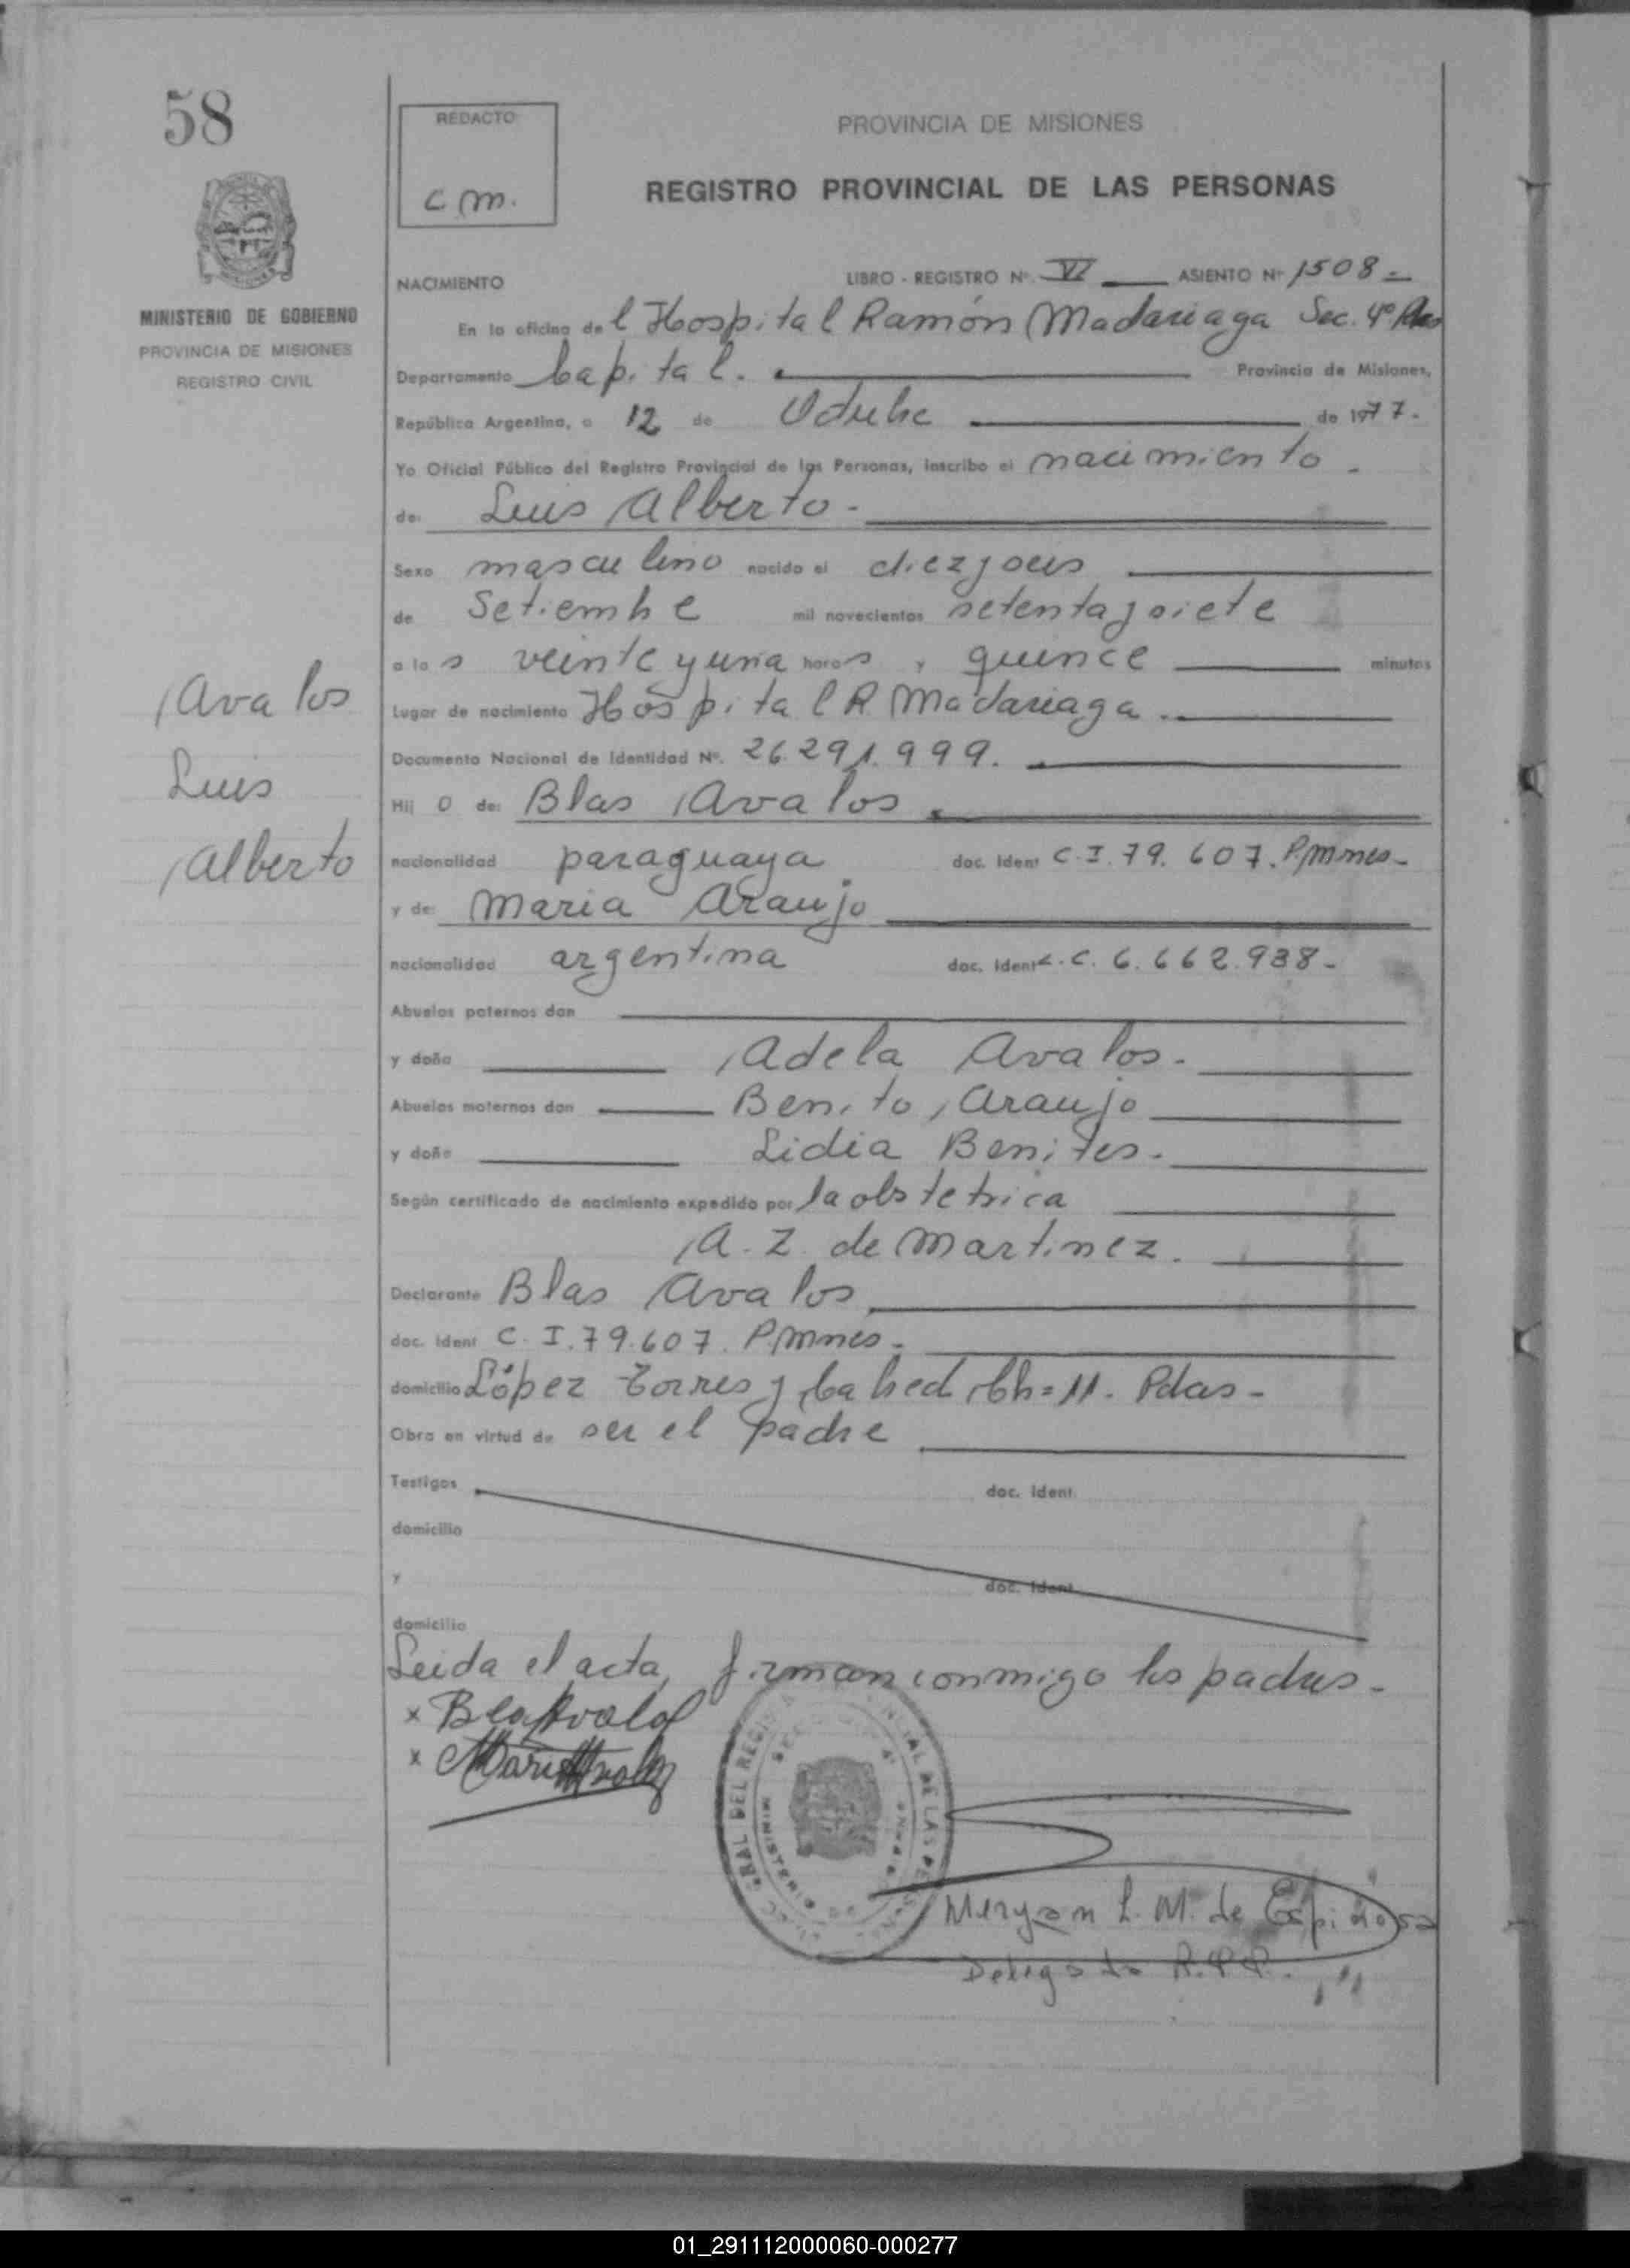 58
REDACTO
C m.
PROVINCIA DE MISIONES
REGISTRO PROVINCIAL DE LAS PERSONAS
MINISTERIO DE GOBIERNO
PROVINCIA DE MISIONES
REGISTRO CIVIL
NACIMIENTO LIBRO - REGISTRO Nº VI ASIENTO Nº 1508 -
En la oficina del Hospital Ramón Madariaga Sec. 4º
Departamento Capital. Provincia de Misiones,
República Argentina, a 12 de Octubre de 1977.
Yo Oficial Público del Registro Provincial de las Personas, inscribo el nacimiento.
de: Luis Alberto.
Sexo masculino nacido el diezyseis
de Setiembre mil novecientos setentaysiete
a las veinte y una horas y quince minutos
Lugar de nacimiento Hospital R. Madariaga.
Documento Nacional de Identidad Nº. 26.291.999.
Hijo de: Blas Avalos.
nacionalidad paraguaya doc. Ident C.I. 79.607. P.Mnes-
y de: Maria Araujo
nacionalidad argentina doc. Ident L.C. 6.662.938-
Abuelos paternos don
y doña Adela Avalos.
Abuelos maternos don Benito Araujo
y doña Lidia Benites.
Según certificado de nacimiento expedido por la obstetrica
A. Z. de Martinez.
Declarante Blas Avalos
doc. Ident C.I. 79.607. P.Mnes-
domicilio López Torres y Cabred Ch=11. Pdas-
Obra en virtud de ser el padre
Testigos doc. Ident.
domicilio
y doc. Ident.
domicilio
Leida el acta, firman conmigo los padres-
x Blas Avalos
x Maria
Avalos
Luis
Alberto
MINISTERIO
Meryan L. M. de Espinosa
Delegada R.P.P.
01_291112000060-000277